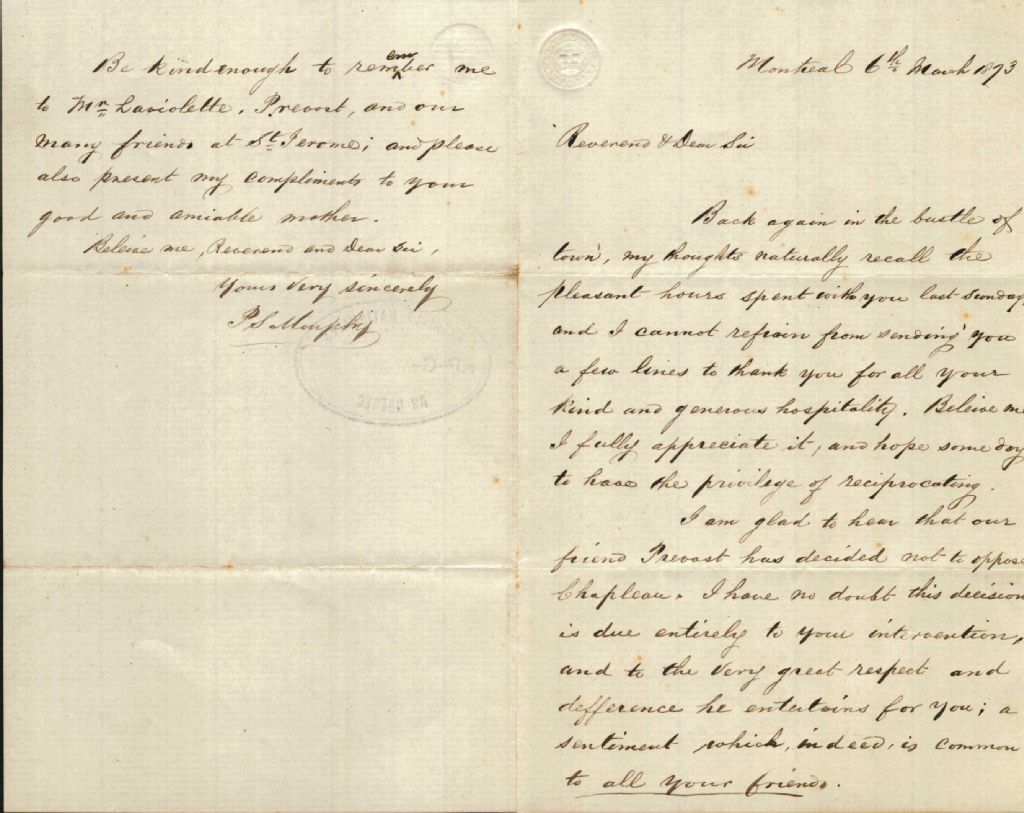 Montreal 6th March 1873
Reverend & Dear Sir
Back again in the bustle of
town, my thoughts naturally recall the
pleasant hours spent with you last sunday
and I cannot refrain from sending you
a few lines to thank you for all your
kind and generous hospitality. Beleive me
I fully appreciate it, and hope some day
to have the privilege of reciprocating.
I am glad to hear that our
friend Prevost has decided not to oppose
Chapleau. I have no doubt this decision
is due entirely to your intervention,
and to the very great respect and
defference he entertains for you; a
sentiment which, indeed, is common
to all your friends.
Be kind enough to remember me
to Mr Laviolette, Prevost, and our
many friends at St Jerome; and please
also present my compliments to your
good and amiable mother.
Beleive me, Reverend and Dear Sir,
Yours very sincerely
P S Murphy